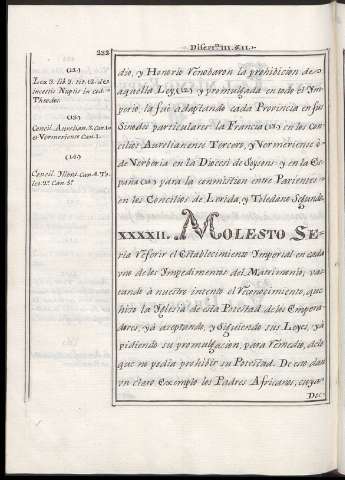 232
Disert.ⁿ III. §.II.
(12)
Lex 3. lib 3. tit. 12. de
incestis Nuptis in cod.
Theodos.
(13)
Concil. Aurelian. 3. Can. 10
et Vermeriense Can. 1.
(14)
Concil. Illerd. Can. 4. To-
let. 2.º Can. 5.º
dio, y Honorio renobaron la prohibicion de
aquella Ley, (12) y promulgada en todo el Ym-
perio, la fue adaptando cada Provincia en sus
Sinodos particulares: la Francia (13) en los Con-
cilios Aurelianense Tercero, y Vermeriense ó
de Verberia en la Diocesi de Soysons; y en la Es-
paña (14) para la conmistion entre Parientes
en los Concilios de Lerida, y Toledano Segundo.
XXXXII. MOLESTO SE-
ria referir el Establecimiento Ymperial en cada
uno de los Ympedimentos del Matrimonio, vas-
tando à nuestro intento el reconocimiento, que
hizo la Yglesia de esta Potestad de los Empera-
dores, yà aceptando, y siguiendo sus Leyes, yà
pidiendo su promulgacion, para remedio, de lo
que no podia prohibir su Potestad. De esto, dan
un claro exemplo los Padres Africanos, cuya
Dec-